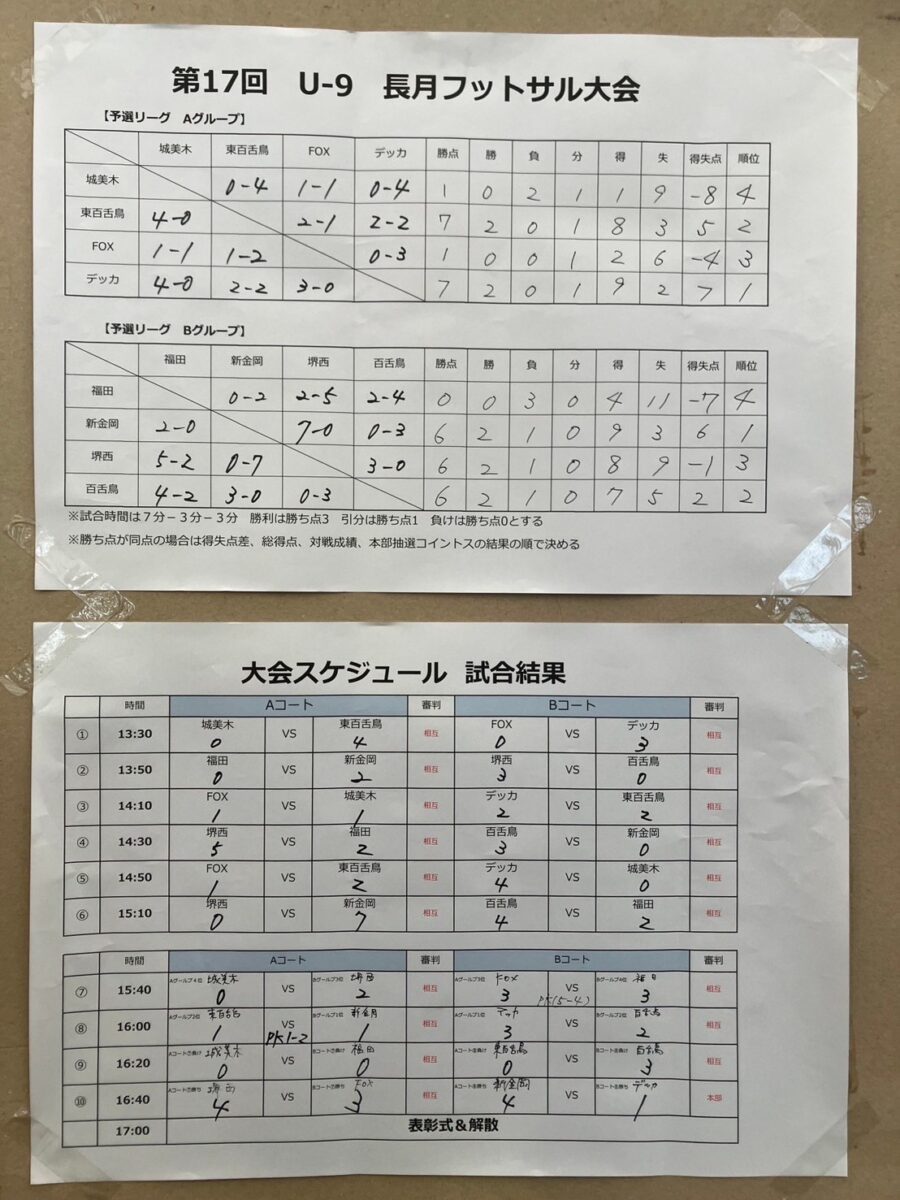 第17回 U-9 長月フットサル大会
【予選リーグ Aグループ】
城美木 東百舌鳥 FOX デッカ 勝点 勝 負 分 得 失 得失点 順位
城美木 0-4 1-1 0-4 1 0 2 1 1 9 -8 4
東百舌鳥 4-0 2-1 2-2 7 2 0 1 8 3 5 2
FOX 1-1 1-2 0-3 1 0 0 1 2 6 -4 3
デッカ 4-0 2-2 3-0 7 2 0 1 9 2 7 1
【予選リーグ Bグループ】
福田 新金岡 堺西 百舌鳥 勝点 勝 負 分 得 失 得失点 順位
福田 0-2 2-5 2-4 0 0 3 0 4 11 -7 4
新金岡 2-0 7-0 0-3 6 2 1 0 9 3 6 1
堺西 5-2 0-7 3-0 6 2 1 0 8 9 -1 3
百舌鳥 4-2 3-0 0-3 6 2 1 0 7 5 2 2
※試合時間は7分－3分－3分 勝利は勝ち点3 引分は勝ち点1 負けは勝ち点0とする
※勝ち点が同点の場合は得失点差、総得点、対戦成績、本部抽選コイントスの結果の順で決める
大会スケジュール 試合結果
時間 Aコート 審判 Bコート 審判
① 13:30 城美木 0 VS 東百舌鳥 4 相互 FOX 0 VS デッカ 3 相互
② 13:50 福田 0 VS 新金岡 2 相互 堺西 3 VS 百舌鳥 0 相互
③ 14:10 FOX 1 VS 城美木 1 相互 デッカ 2 VS 東百舌鳥 2 相互
④ 14:30 堺西 5 VS 福田 2 相互 百舌鳥 3 VS 新金岡 0 相互
⑤ 14:50 FOX 1 VS 東百舌鳥 2 相互 デッカ 4 VS 城美木 0 相互
⑥ 15:10 堺西 0 VS 新金岡 7 相互 百舌鳥 4 VS 福田 2 相互
時間 Aコート 審判 Bコート 審判
⑦ 15:40 Aグループ4位 城美木 0 VS Bグループ3位 堺西 2 相互 Aグループ3位 FOX 3 VS PK(5-4) Bグループ4位 福田 3 相互
⑧ 16:00 Aグループ2位 東百舌鳥 1 VS PK1-2 Bグループ1位 新金岡 1 相互 Aグループ1位 デッカ 3 VS Bグループ2位 百舌鳥 2 相互
⑨ 16:20 Aコート⑦負け 城美木 0 VS Bコート⑦負け 福田 0 相互 Aコート⑧負け 東百舌鳥 0 VS Bコート⑧負け 百舌鳥 3 相互
⑩ 16:40 Aコート⑦勝ち 堺西 4 VS Bコート⑦勝ち FOX 3 相互 Aコート⑧勝ち 新金岡 4 VS Bコート⑧勝ち デッカ 1 本部
17:00 表彰式＆解散